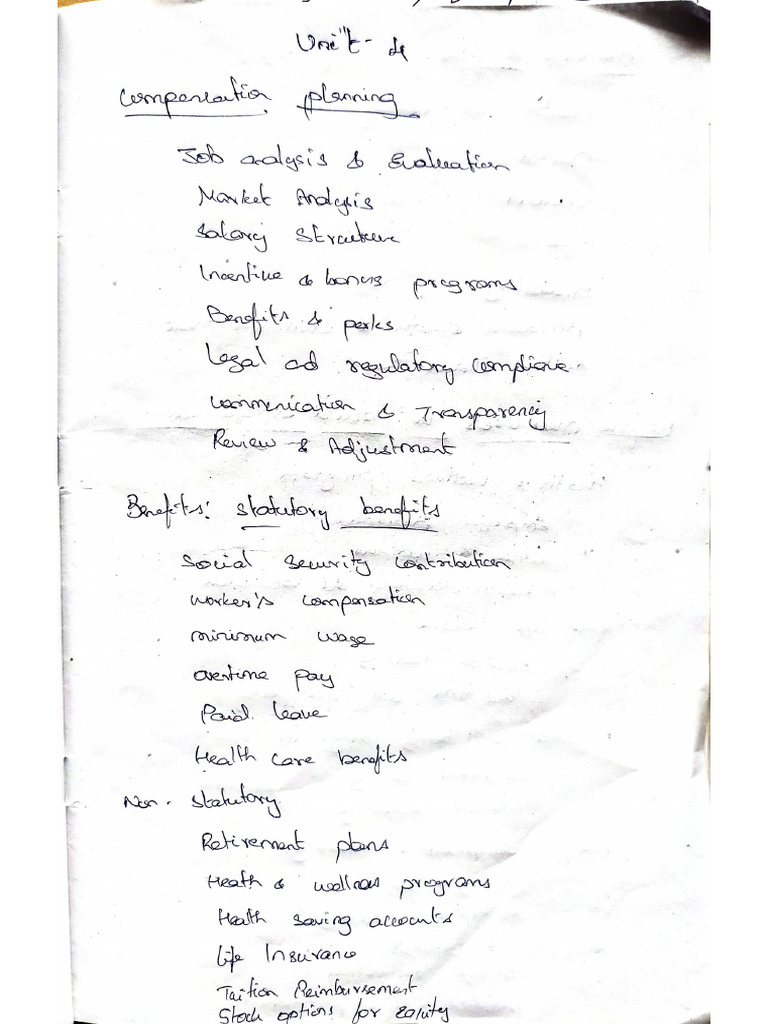 Unit - 4
Compensation planning
Job analysis & Evaluation
Market Analysis
Salary Structure
Incentive & bonus programs
Benefits & perks
Legal ad regulatory compliance
Communication & Transparency
Review & Adjustment
Benefits: Statutory benefits
Social security contribution
worker's compensation
minimum wage
overtime pay
Paid leave
Health care benefits
Non - Statutory
Retirement plans
Heath & wellness programs
Health saving accounts
Life Insurance
Tuition Reimbursement
Stock options for equity